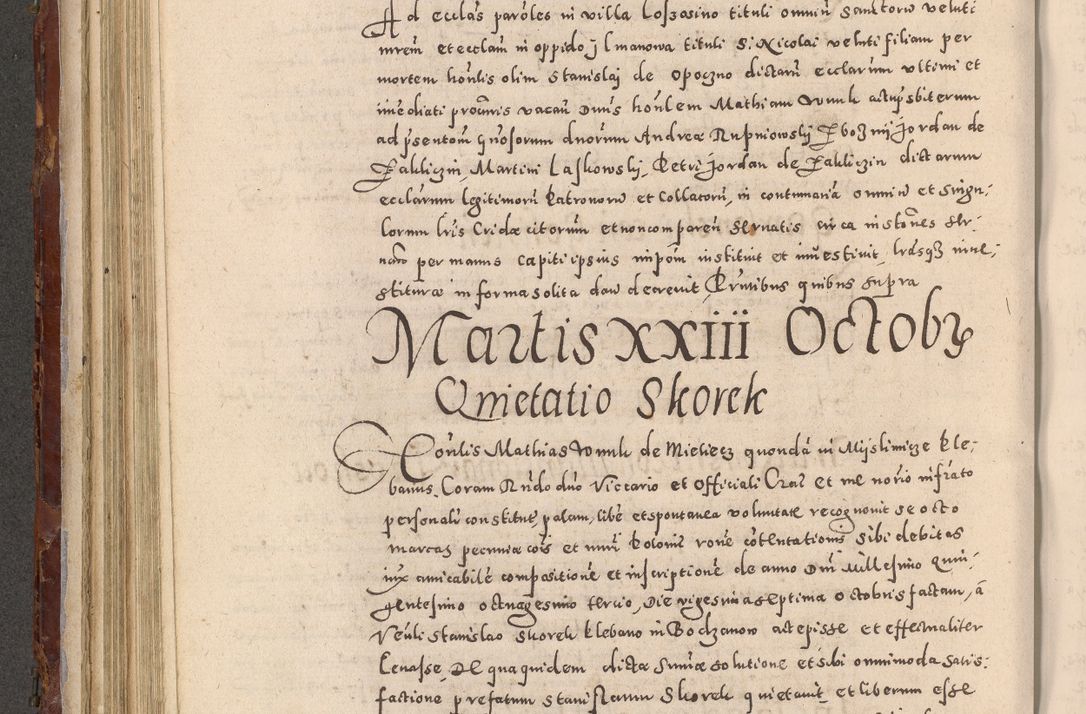 Ad ecclas paroles in villa Loszosino tituli omniū Sanctorū veluti
mrem et ecclam in oppido j lmanowa tituli S: Nicolai veluti filiam per
mortem honlis olim Stanislaj de Opoczno dictarū ecclarum vltimi et
imediati provisris vacan̄ Dnus honlem Mathiam Wnuk actu psbiterum
ad psentom gnosorum dnorum Andreæ Rupniowskj Jordan de
Zakliczin, Martini Laskowskj, Petri Jordan de Zakliczin dictarum
ecclarum legitimorū Patronorū et Collatorū, in contumaciā omniū et singu:
lorum lris Cridæ citorum et non comparen̄ servatis circa insto͞nes ser:
uan͞ per manus capiti ipsius impo͞m instituit et inuestiuit, lrasqz inue:
stituræ in forma solita dari decreuit, Pñtibus quibus supra
Martis XXIII Octobr
Quietatio Skorek
Honlis Mathias Wnuk de Mielecz quondā in Mijslimicze Ple:
banus, Coram Rndo dno Vicario et Officiali Crac et me norio infrato
personalr constitut, palam, libē et spontanea voluntate recognouit se octo
marcas pecuniæ cois et numi Poloniē rone cotentationis sibi debitas
iux amicabilē compositionē et inscriptionē de anno Dni Millesimo quin:
gentesimo octuagesimo tercio, Die vigesima septima octobris factam, ā
Veñli Stanislao Skorek Plebano in Bodzanow accepisse et effectualiter
leuasse, De qua quidem dictæ sumæ solutione et sibi omnimoda satis:
factione prefatum Stanislaum Skorek quietauit et liberum esse